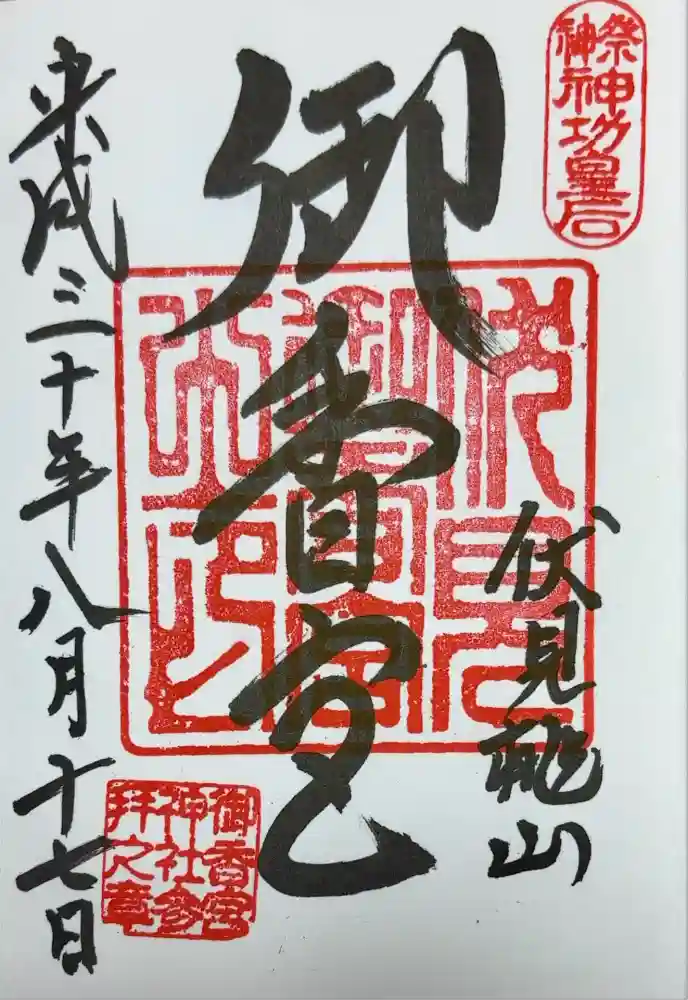 祭神
神功皇后
伏見桃山
御香宮
平成三十年八月十七日
伏見
御香宮
之印
御香宮
神社参
拝之章